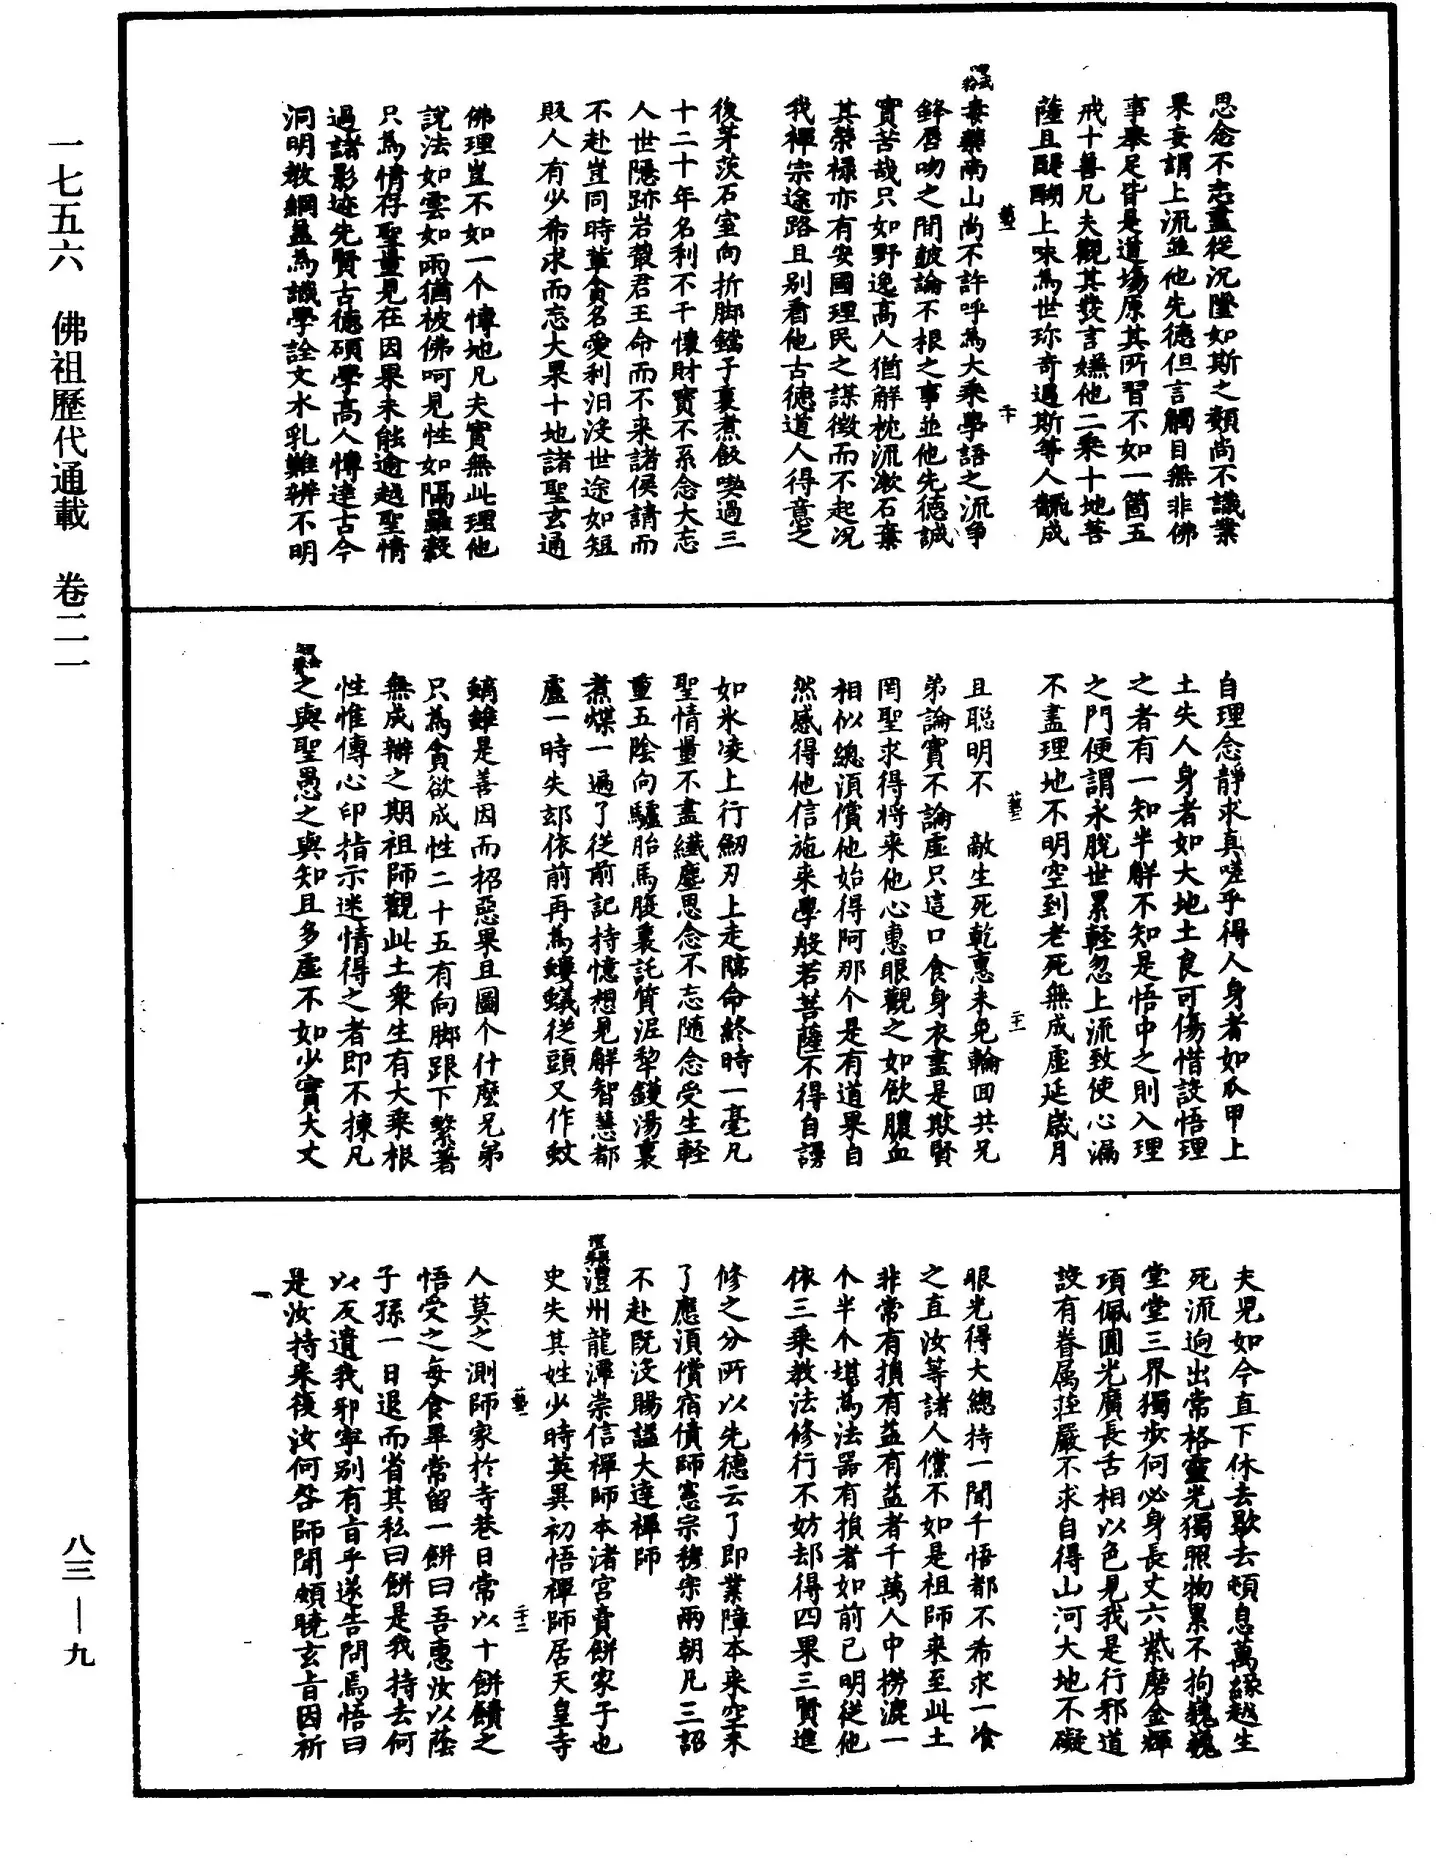 思念不忘盡從沉墜如斯之類尚不識業
果妄謂上流並他先德但言觸目無非佛
事舉足皆是道場原其所習不如一箇五
戒十善凡夫觀其發言嫌他二乘十地菩
薩且醍醐上味為世珍奇遇斯等人翻成
毒藥南山尚不許呼為大乘學語之流爭
鋒唇吻之間皷論不根之事並他先德誠
實苦哉只如野逸高人猶解枕流漱石棄
其榮祿亦有安國理民之謀徵而不起況
我禪宗途路且別看他古德道人得意之
後茅茨石室向折脚鐺子裏煮飯喫過三
十二十年名利不干懷財寶不系念大忘
人世隱跡岩藂君王命而不来諸侯請而
不赴豈同時輩貪名愛利汨沒世途如短
販人有少希求而忘大果十地諸聖玄通
佛理豈不如一个博地凡夫實無此理他
說法如雲如雨猶被佛呵見性如隔羅縠
只為情存聖量見在因果未能逾越聖情
過諸影迹先賢古德碩學高人博達古今
洞明教網蓋為識學詮文水乳難辨不明
自理念靜求真嗟乎得人身者如爪甲上
土失人身者如大地土良可傷惜設悟理
之者有一知半解不知是悟中之則入理
之門便謂永脫世累輕忽上流致使心漏
不盡理地不明空到老死無成虛延歲月
且聰明不 敵生死乾惠未免輪回共兄
弟論實不論虛只這口食身衣盡是欺賢
罔聖求得將来他心惠眼觀之如飲膿血
相似總須償他始得阿那个是有道果自
然感得他信施来學般若菩薩不得自謾
如氷凌上行劒刃上走臨命終時一毫凡
聖情量不盡纖塵思念不忘隨念受生輕
重五陰向驢胎馬腹裏託質泥犂鑊湯裏
煮煠一遍了從前記持憶想見解智慧都
盧一時失却依前再為螻蟻從頭又作蚊
䖟雖是善因而招惡果且圖个什麽兄弟
只為貪欲成性二十五有向脚跟下繫著
無成辦之期祖師觀此土衆生有大乘根
性惟傳心印指示迷情得之者即不揀凡
之與聖愚之與知且多虛不如少實大丈
夫児如今直下休去歇去頓息萬緣越生
死流逈出常格靈光獨照物累不拘巍巍
堂堂三界獨步何必身長丈六紫磨金輝
項佩圓光廣長舌相以色見我是行邪道
設有眷属莊嚴不求自得山河大地不礙
眼光得大總持一聞千悟都不希求一飡
之直汝等諸人儻不如是祖師来至此土
非常有損有益有益者千萬人中撈漉一
个半个堪為法器有損者如前已明從他
依三乘教法修行不妨却得四果三賢進
修之分所以先德云了即業障本来空未
了應須償宿債師憲宗穆宗兩朝凡三詔
不赴既沒賜謚大達禪師
澧州龍潭崇信禪師本渚宮賣餅家子也
史失其姓少時英異初悟禪師居天皇寺
人莫之測師家扵寺巷日常以十餅饋之
悟受之每食畢常留一餅曰吾惠汝以蔭
子孫一日退而省其私曰餅是我持去何
以反遺我邪寧別有旨乎遂告問焉悟曰
是汝持来復汝何咎師聞頗曉玄旨因祈
藝
二十
藝
二十一
藝
二十二
一七五六 佛祖歷代通載 卷二一
八三—九